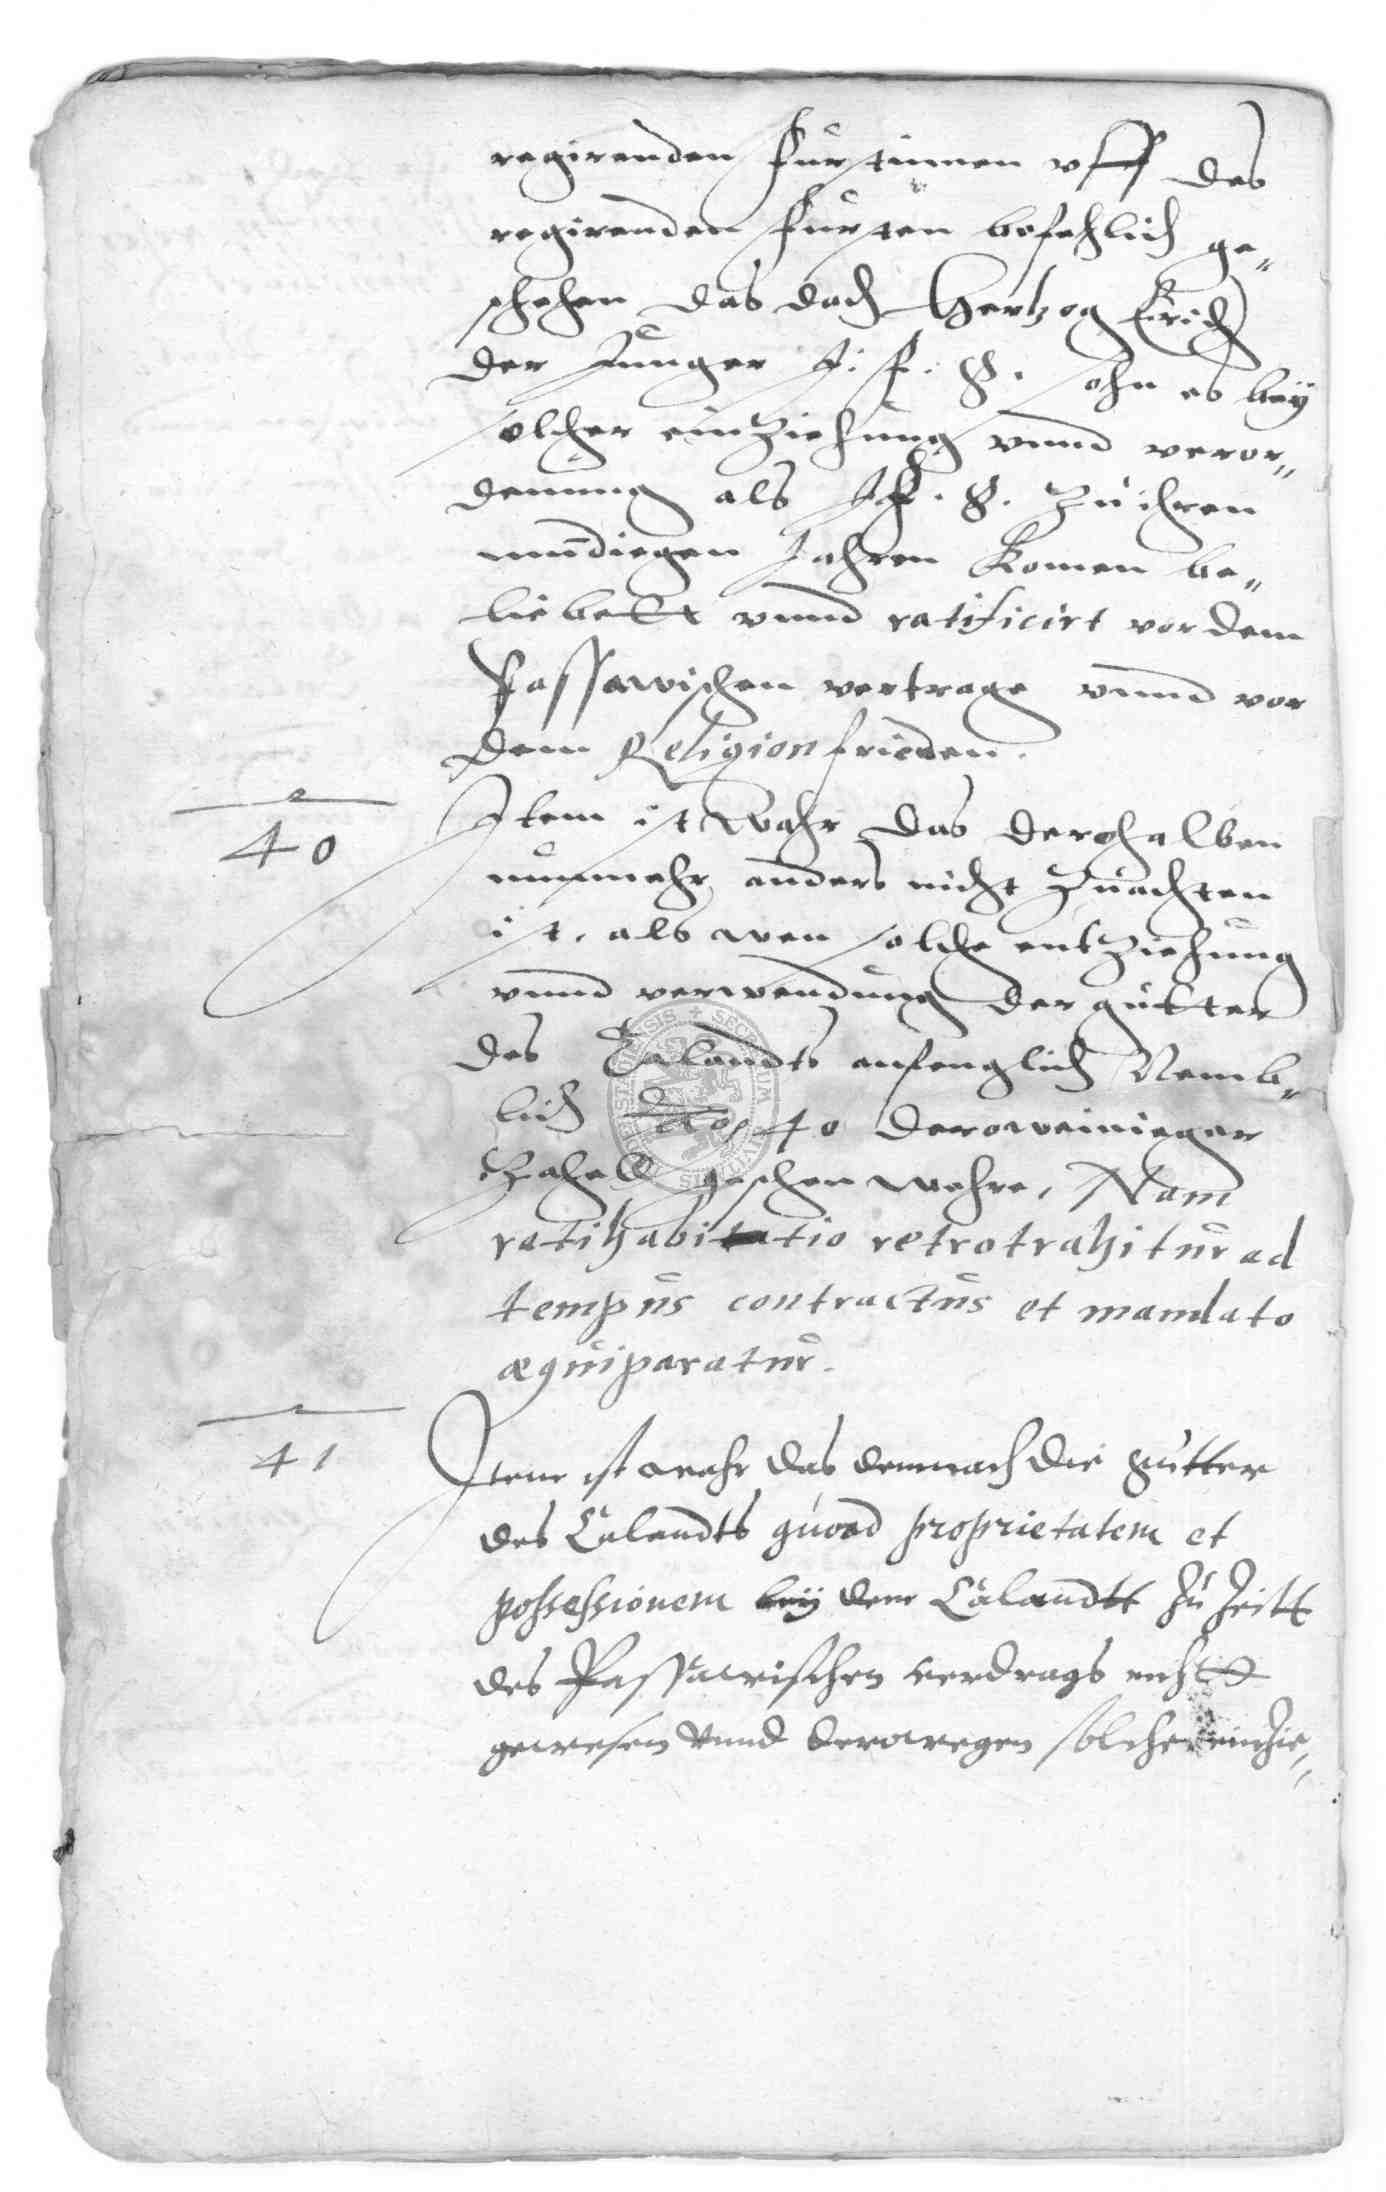 regirenden Furstinnen vff des
regirenden Fursten befehlich ge„
schehen das doch Hertzog Erich
der Junger J. F. G. sohn es bey
solcher einziehung vnnd veror„
denung als J F. G. zu ihren
mundiegen Jahren komen be„
liebett vnnd ratificirt vor dem
Passawischen vertrage vnnd vor
dem Religion frieden.
40
Item ist wahr das derohalben
nunmehr anders nicht zuachten
ist, als wen solche entziehung
vnnd verwendung der gutter
des Calandts anfenglich Nemb„
lich Ao. 40 der weiniger
Zahall geschen wehre, Nam
ratihabitatio retrotrahitur ad
tempus contractus et mandato
æquiparatur.
41
Item ist wahr das demnach die gütter
des Calandts quoad proprietatem et
possessionem bey dem Calandtt zu zeitt
des Passawischen verdrags nichtt
gewesen vnnd derowegen solche einzie„